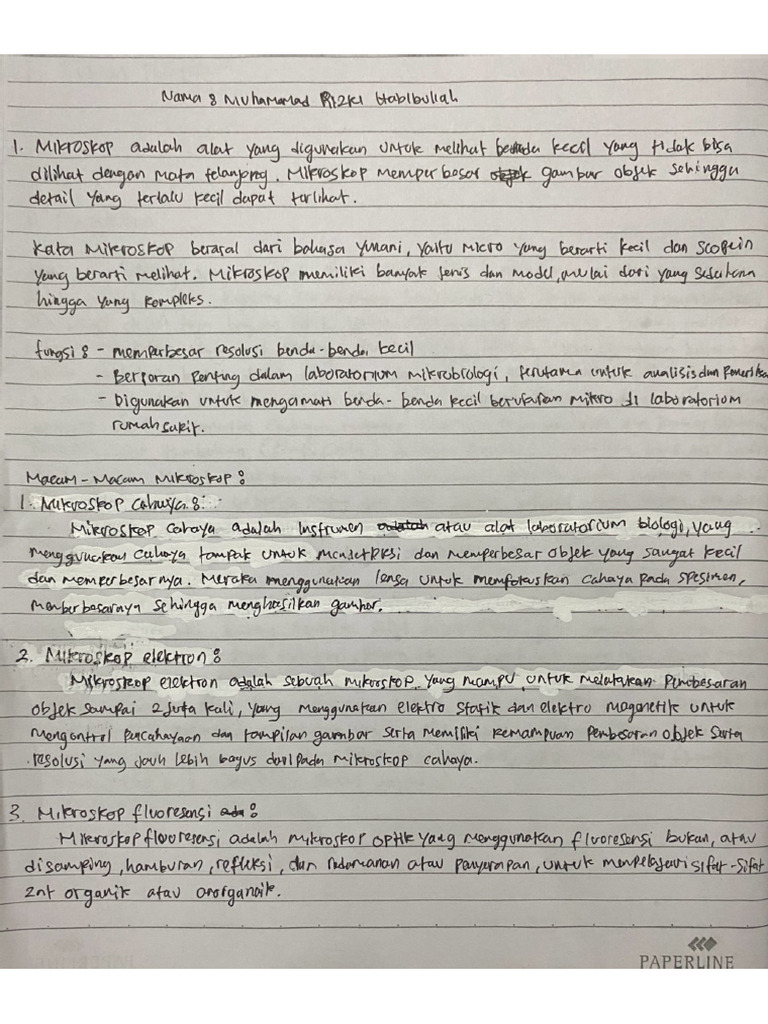 Nama : Muhammad Rizki Habibullah
1. Mikroskop adalah alat yang digunakan untuk melihat benda kecil yang tidak bisa
dilihat dengan mata telanjang. Mikroskop memperbesar gambar objek sehingga
detail yang terlalu kecil dapat terlihat.
Kata Mikroskop berasal dari bahasa Yunani, yaitu micro yang berarti kecil dan scopein
yang berarti melihat. Mikroskop memiliki banyak jenis dan model, mulai dari yang sederhana
hingga yang kompleks.
fungsi : - memperbesar resolusi benda-benda kecil
- Berperan penting dalam laboratorium mikrobiologi, terutama untuk analisis dan
- Digunakan untuk mengamati benda-benda kecil berukuran mikro di laboratorium
rumah sakit.
Macam-Macam Mikroskop :
1. Mikroskop cahaya :
Mikroskop cahaya adalah instrumen atau alat laboratorium biologi, yang
menggunakan cahaya tampak untuk mendeteksi dan memperbesar objek yang sangat kecil
dan memperbesarnya. Meraka menggunakan lensa untuk memfokuskan cahaya pada spesimen,
memberbesarnya sehingga menghasilkan gambar.
2. Mikroskop elektron :
Mikroskop elektron adalah sebuah mikroskop yang mampu untuk melakukan Pembesaran
objek sampai 2 juta kali, yang menggunakan elektro statik dan elektro magnetik untuk
mengontrol pencahayaan dan tampilan gambar serta memiliki kemampuan Pembesaran objek serta
resolusi yang jauh lebih bagus daripada mikroskop cahaya.
3. Mikroskop fluoresensi :
Mikroskop fluoresensi adalah mikroskop optik yang menggunakan fluoresensi bukan, atau
disamping, hamburan, refleksi, dan atau penyerapan, untuk mempelajari sifat-sifat
zat organik atau anorganik.
PAPERLINE